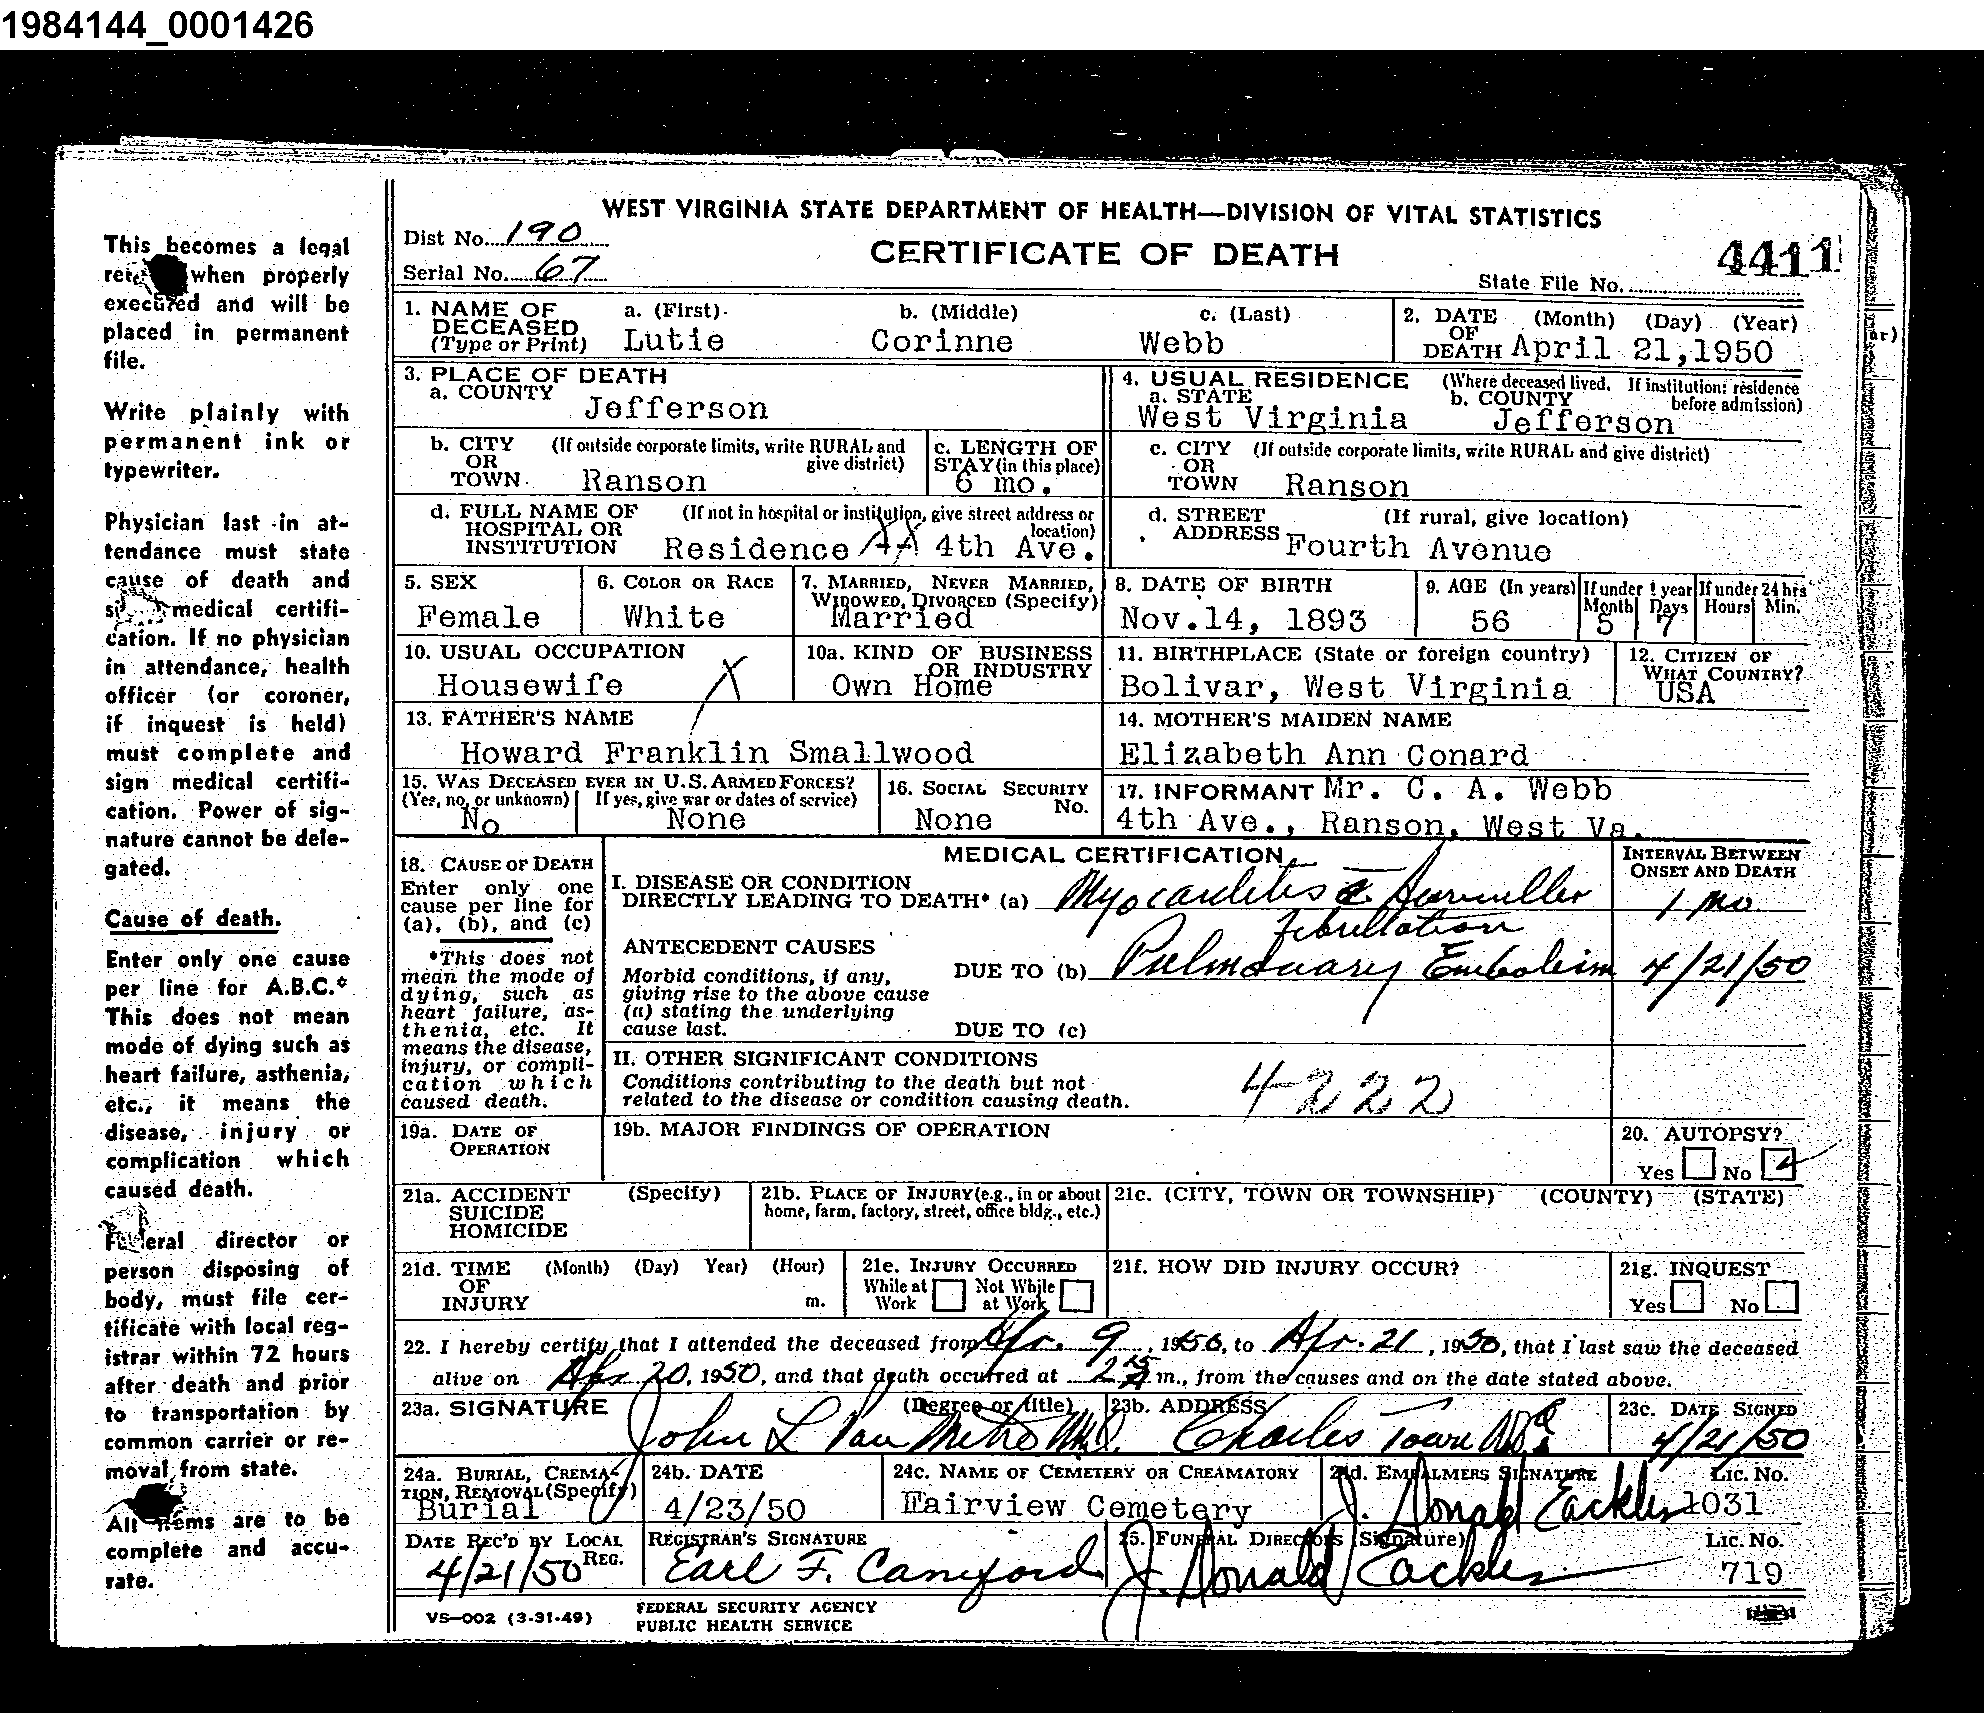 1984144_0001426
This becomes a legal
when properly
executed and will be
placed in permanent
file.
Write plainly with
permanent ink or
typewriter.
Physician last in at-
tendance must state
cause of death and
medical certifi-
cation. If no physician
in attendance, health
officer (or coroner,
if inquest is held)
must complete and
sign medical certifi-
cation. Power of sig-
nature cannot be dele-
gated.
Cause of death.
Enter only one cause
per line for A.B.C.*
This does not mean
mode of dying such as
heart failure, asthenia,
etc., it means the
disease, injury or
complication which
caused death.
Funeral director or
person disposing of
body, must file cer-
tificate with local reg-
istrar within 72 hours
after death and prior
to transportation by
common carrier or re-
moval from state.
All items are to be
complete and accu-
rate.
WEST VIRGINIA STATE DEPARTMENT OF HEALTH—DIVISION OF VITAL STATISTICS
Dist No. 190
CERTIFICATE OF DEATH
4411
Serial No. 67
State File No.
1. NAME OF DECEASED (Type or Print) a. (First) Lutie b. (Middle) Corinne c. (Last) Webb
2. DATE OF DEATH (Month) (Day) (Year) April 21, 1950
3. PLACE OF DEATH
a. COUNTY Jefferson
4. USUAL RESIDENCE (Where deceased lived. If institution: residence before admission)
a. STATE West Virginia b. COUNTY Jefferson
b. CITY OR TOWN (If outside corporate limits, write RURAL and give district) Ranson
c. LENGTH OF STAY (in this place) 6 mo.
c. CITY OR TOWN (If outside corporate limits, write RURAL and give district) Ranson
d. FULL NAME OF HOSPITAL OR INSTITUTION (If not in hospital or institution, give street address or location) Residence 4th Ave.
d. STREET ADDRESS (If rural, give location) Fourth Avenue
5. SEX Female
6. COLOR OR RACE White
7. MARRIED, NEVER MARRIED, WIDOWED, DIVORCED (Specify) Married
8. DATE OF BIRTH Nov.14, 1893
9. AGE (In years) 56 If under 1 year Month 5 Days 7 If under 24 hrs Hours Min.
10. USUAL OCCUPATION Housewife X
10a. KIND OF BUSINESS OR INDUSTRY Own Home
11. BIRTHPLACE (State or foreign country) Bolivar, West Virginia
12. CITIZEN OF WHAT COUNTRY? USA
13. FATHER'S NAME Howard Franklin Smallwood
14. MOTHER'S MAIDEN NAME Elizabeth Ann Conard
15. WAS DECEASED EVER IN U.S. ARMED FORCES? (Yes, no, or unknown) No If yes, give war or dates of service) None
16. SOCIAL SECURITY No. None
17. INFORMANT Mr. C. A. Webb
4th Ave., Ranson, West Va.
MEDICAL CERTIFICATION
INTERVAL BETWEEN ONSET AND DEATH
18. CAUSE OF DEATH
Enter only one
cause per line for
(a), (b), and (c)
*This does not
mean the mode of
dying, such as
heart failure, as-
thenia, etc. It
means the disease,
injury, or compli-
cation which
caused death.
I. DISEASE OR CONDITION
DIRECTLY LEADING TO DEATH* (a) Myocarditis c̄ Auricular 1 mo
Fibrillation
ANTECEDENT CAUSES
Morbid conditions, if any,
giving rise to the above cause
(a) stating the underlying
cause last.
DUE TO (b) Pulmonary Embolism 4/21/50
DUE TO (c)
II. OTHER SIGNIFICANT CONDITIONS
Conditions contributing to the death but not
related to the disease or condition causing death.
4222
19a. DATE OF OPERATION
19b. MAJOR FINDINGS OF OPERATION
20. AUTOPSY?
Yes No
21a. ACCIDENT SUICIDE HOMICIDE (Specify)
21b. PLACE OF INJURY (e.g., in or about home, farm, factory, street, office bldg., etc.)
21c. (CITY, TOWN OR TOWNSHIP) (COUNTY) (STATE)
21d. TIME OF INJURY (Month) (Day) Year) (Hour) m.
21e. INJURY OCCURRED
While at Work Not While at Work
21f. HOW DID INJURY OCCUR?
21g. INQUEST
Yes No
22. I hereby certify that I attended the deceased from Apr. 9, 1950, to Apr. 21, 1950, that I last saw the deceased
alive on Apr 20, 1950, and that death occurred at 2 15 A m., from the causes and on the date stated above.
23a. SIGNATURE (Degree or title) John L Van Metre M.D.
23b. ADDRESS Charles Town
23c. DATE SIGNED 4/21/50
24a. BURIAL, CREMATION, REMOVAL (Specify) Burial
24b. DATE 4/23/50
24c. NAME OF CEMETERY OR CREAMATORY Fairview Cemetery
24d. EMBALMERS SIGNATURE J. Donald Eackles Lic. No. 1031
DATE REC'D BY LOCAL REG. 4/21/50
REGISTRAR'S SIGNATURE Earl F.
25. FUNERAL DIRECTORS (Signature) J. Donald Eackles Lic. No. 719
VS-002 (3-31-49)
FEDERAL SECURITY AGENCY
PUBLIC HEALTH SERVICE